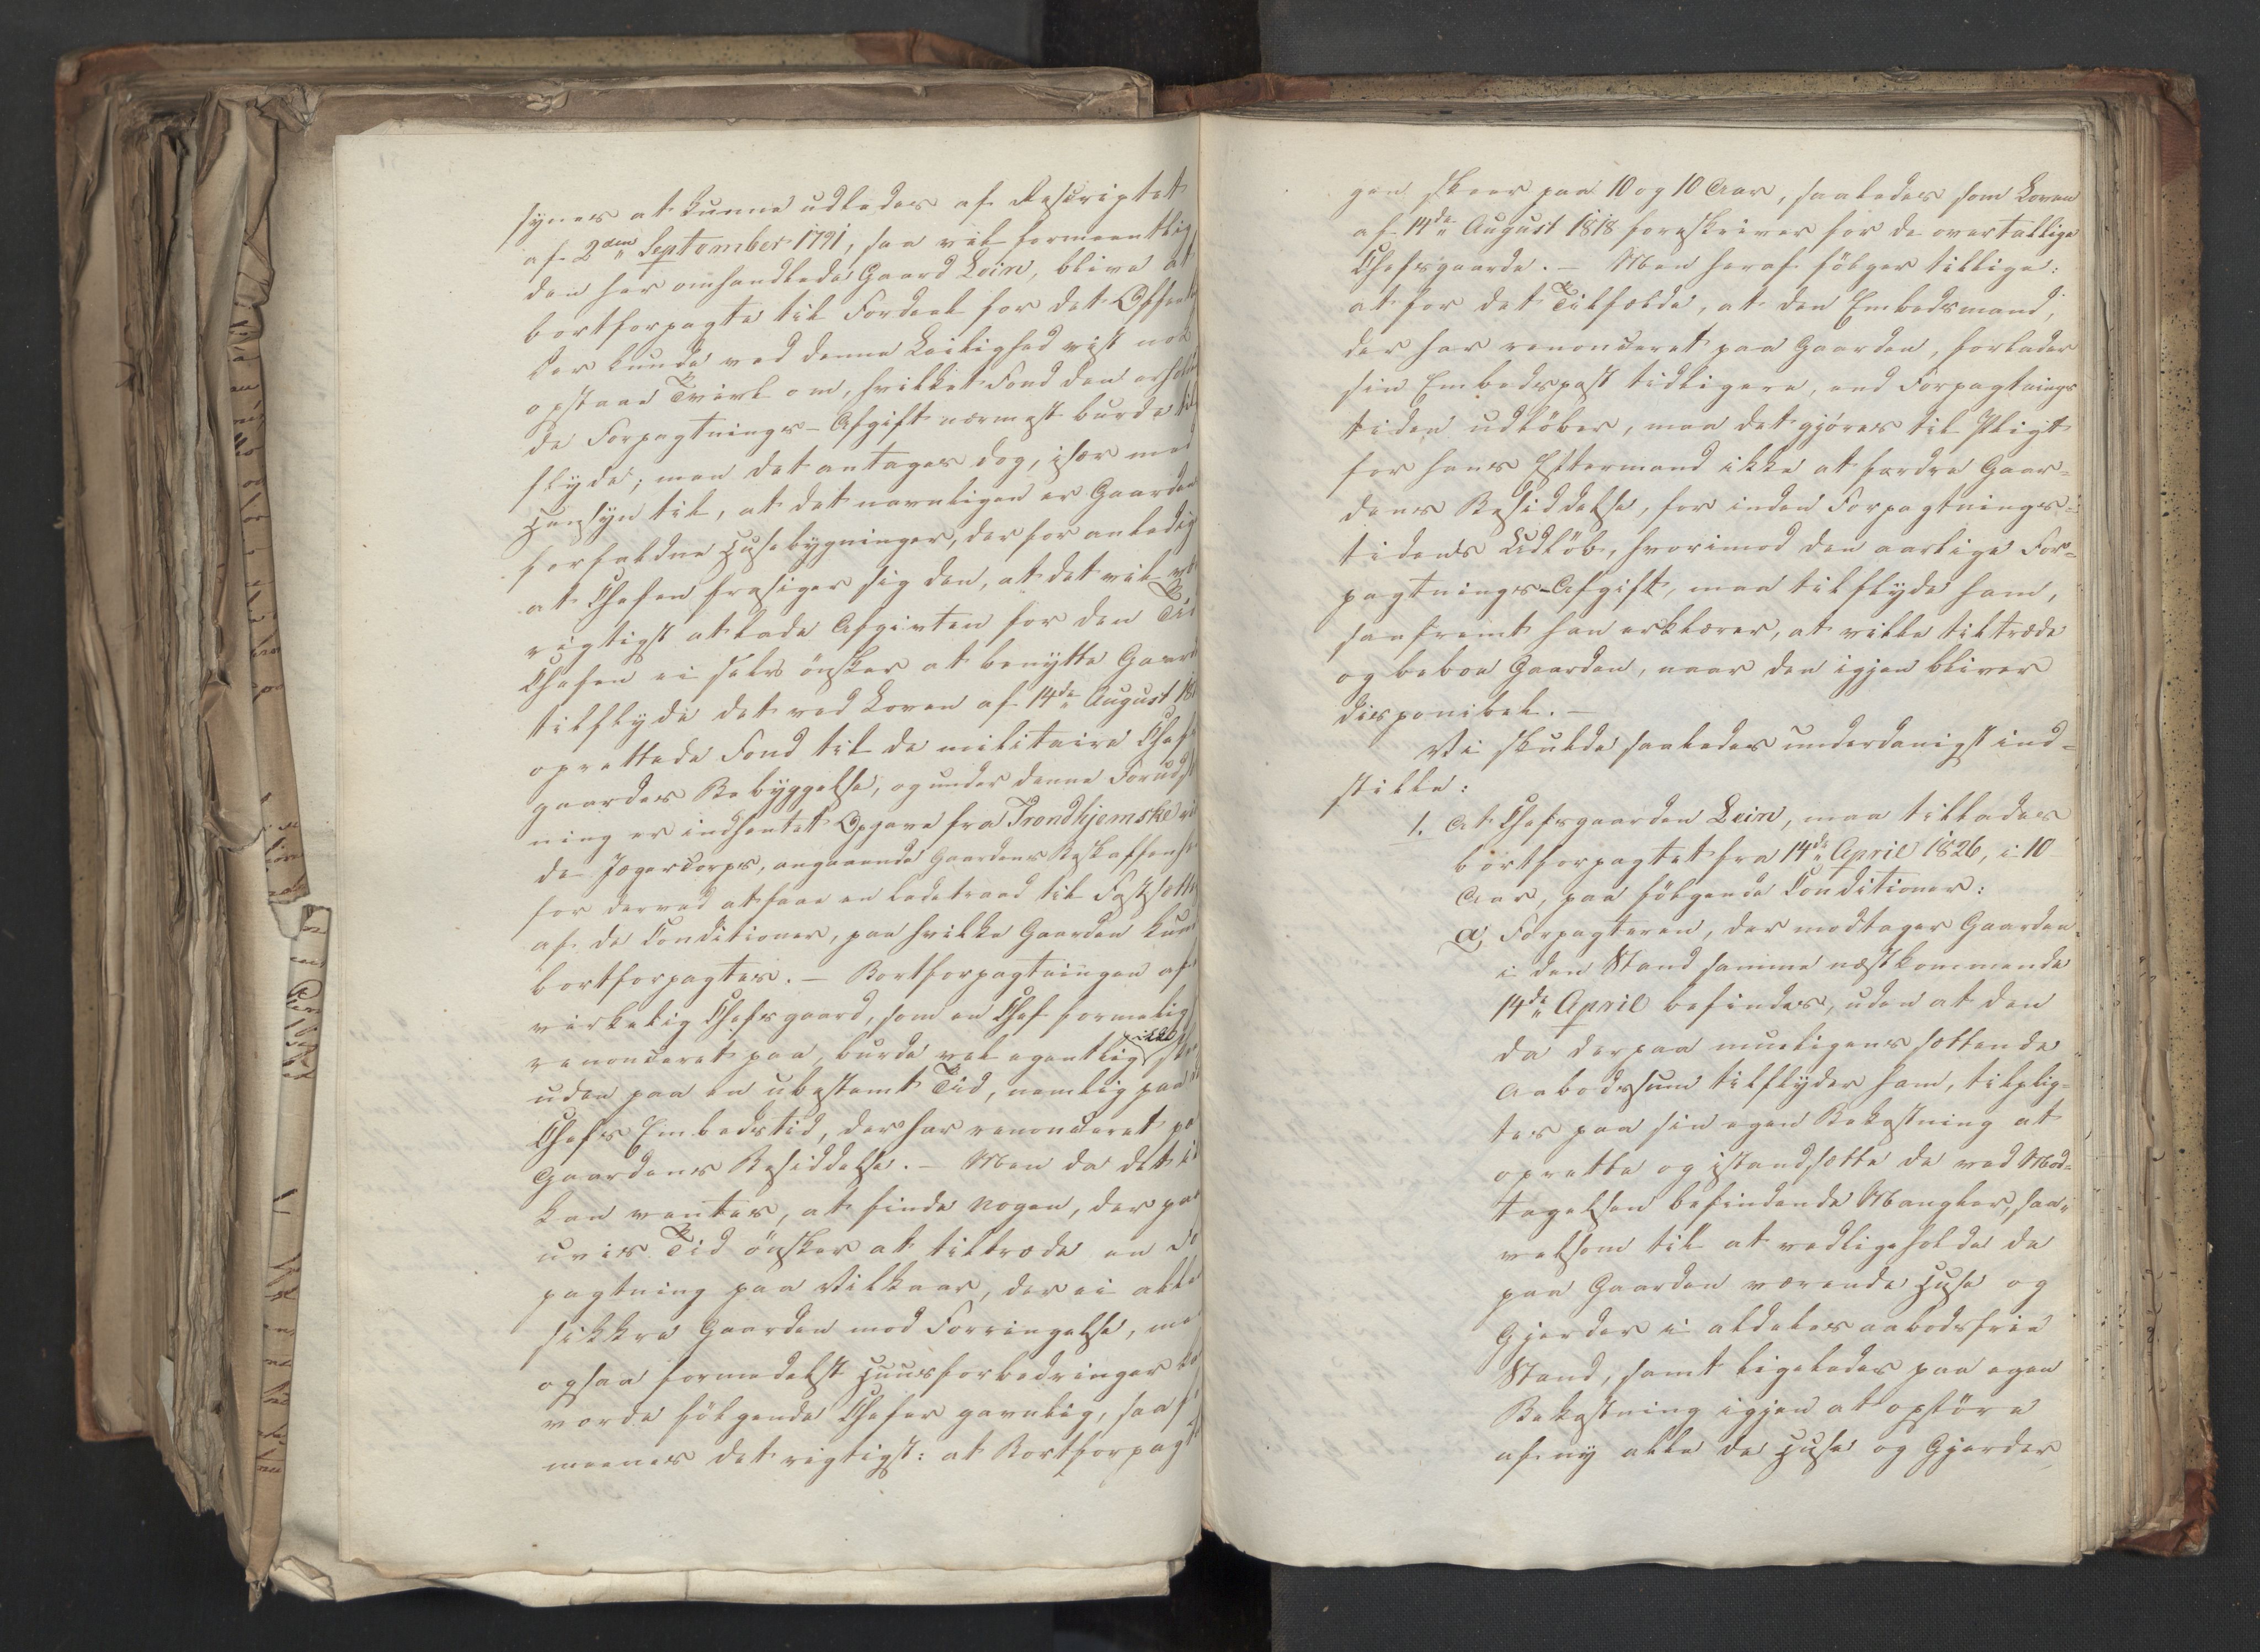 synes at kunne udledes af Rescriptet
af 2den September 1791, saa vil formeentlig
den her omhandlede Gaard Lein, blive at
bortforpagte til Fordeel for det Offent
Der kunde ved denne Leilighed vist nok
opstaae Tvivl om, hvilket Fond den erhold
de Forpagtnings-Afgift nærmest burde til
flyde; men det antages dog, især med
Hensyn til, at det navnligen er Gaarden
forfaldne Huusebygninger, der foranledig
at Chefen frasiger sig den, at det vil væ
rigtigst at lade Afgivten for den Tid
Chefen ei selv ønsker at benytte Gaard
tilflyde det ved Loven af 14de August 18
oprettede Fond til de militaire Chefs
gaardes Bebyggelse, og under denne Forudsæt
ning er indhentet Opgave fra Trondhjemske ri
de Jægercorps, angaaende Gaardens Beskaffenhe
for derved at faae en Ledetraad til Fastsætte
af de Conditioner, paa hvilke Gaarden kun
bortforpagtes. – Bortforpagtningen af
virkelig Chefsgaard, som en Chef formelig
renonceret paa, burde vel egentlig ikke skee
uden paa en ubestemt Tid, nemlig paa de
Chefs Embedstid, der har renonceret pa
Gaardens Besiddelse. – Men da det ik
kan ventes, at finde Nogen, der paa
uvis Tid ønsker at tiltræde en For
pagtning paa Vilkaar, der ei alle
sikkre Gaarden mod Forringelse, me
ogsaa formedelst Huusforbedringer ka
vorde følgende Chefer gavnlig, saa f
meenes det rigtigst: at Bortforpagt
gen skeer paa 10 og 10 Aar, saaledes som Loven
af 14de August 1818 foreskriver for de overtallige
Chefsgaarde. – Men heraf følger tillige:
at for det Tilfælde, at den Embedsmand,
der har renonceret paa Gaarden, forlader
sin Embedspost tidligere, end Forpagtnings
tiden udløber, maa det gjøres til Pligt
for hans Eftermand ikke at fordre Gaar-
dens Besiddelse, før inden Forpagtnings-
tidens Udløb, hvorimod den aarlige For-
pagtnings-Afgift, maa tilflyde ham,
saafremt han erklærer, at ville tiltræde
og beboe Gaarden, naar den igjen bliver
disponibel. –
Vi skulde saaledes underdanigst ind-
stille:
1. At Chefsgaarden Lein, maa tillades
bortforpagtet fra 14de April 1826, i 10
Aar, paa følgende Conditioner:
a, Forpagteren, der modtager Gaarden
i den Stand samme næstkommende
14de April befindes, uden at den
da derpaa mueligens sættende
Aabodssum tilflyder ham, tilplig-
tes paa sin egen Bekostning at
oprette og istandsætte de ved Mod-
tagelsen befindende Mangler, saa-
velsom til at vedligeholde de
paa Gaarden værende Huse og
Gjerder i aldeles aabodsfrie
Stand, samt ligeledes paa egen
Bekostning igjen at opføre
af ny alle de Huse og Gjerder,